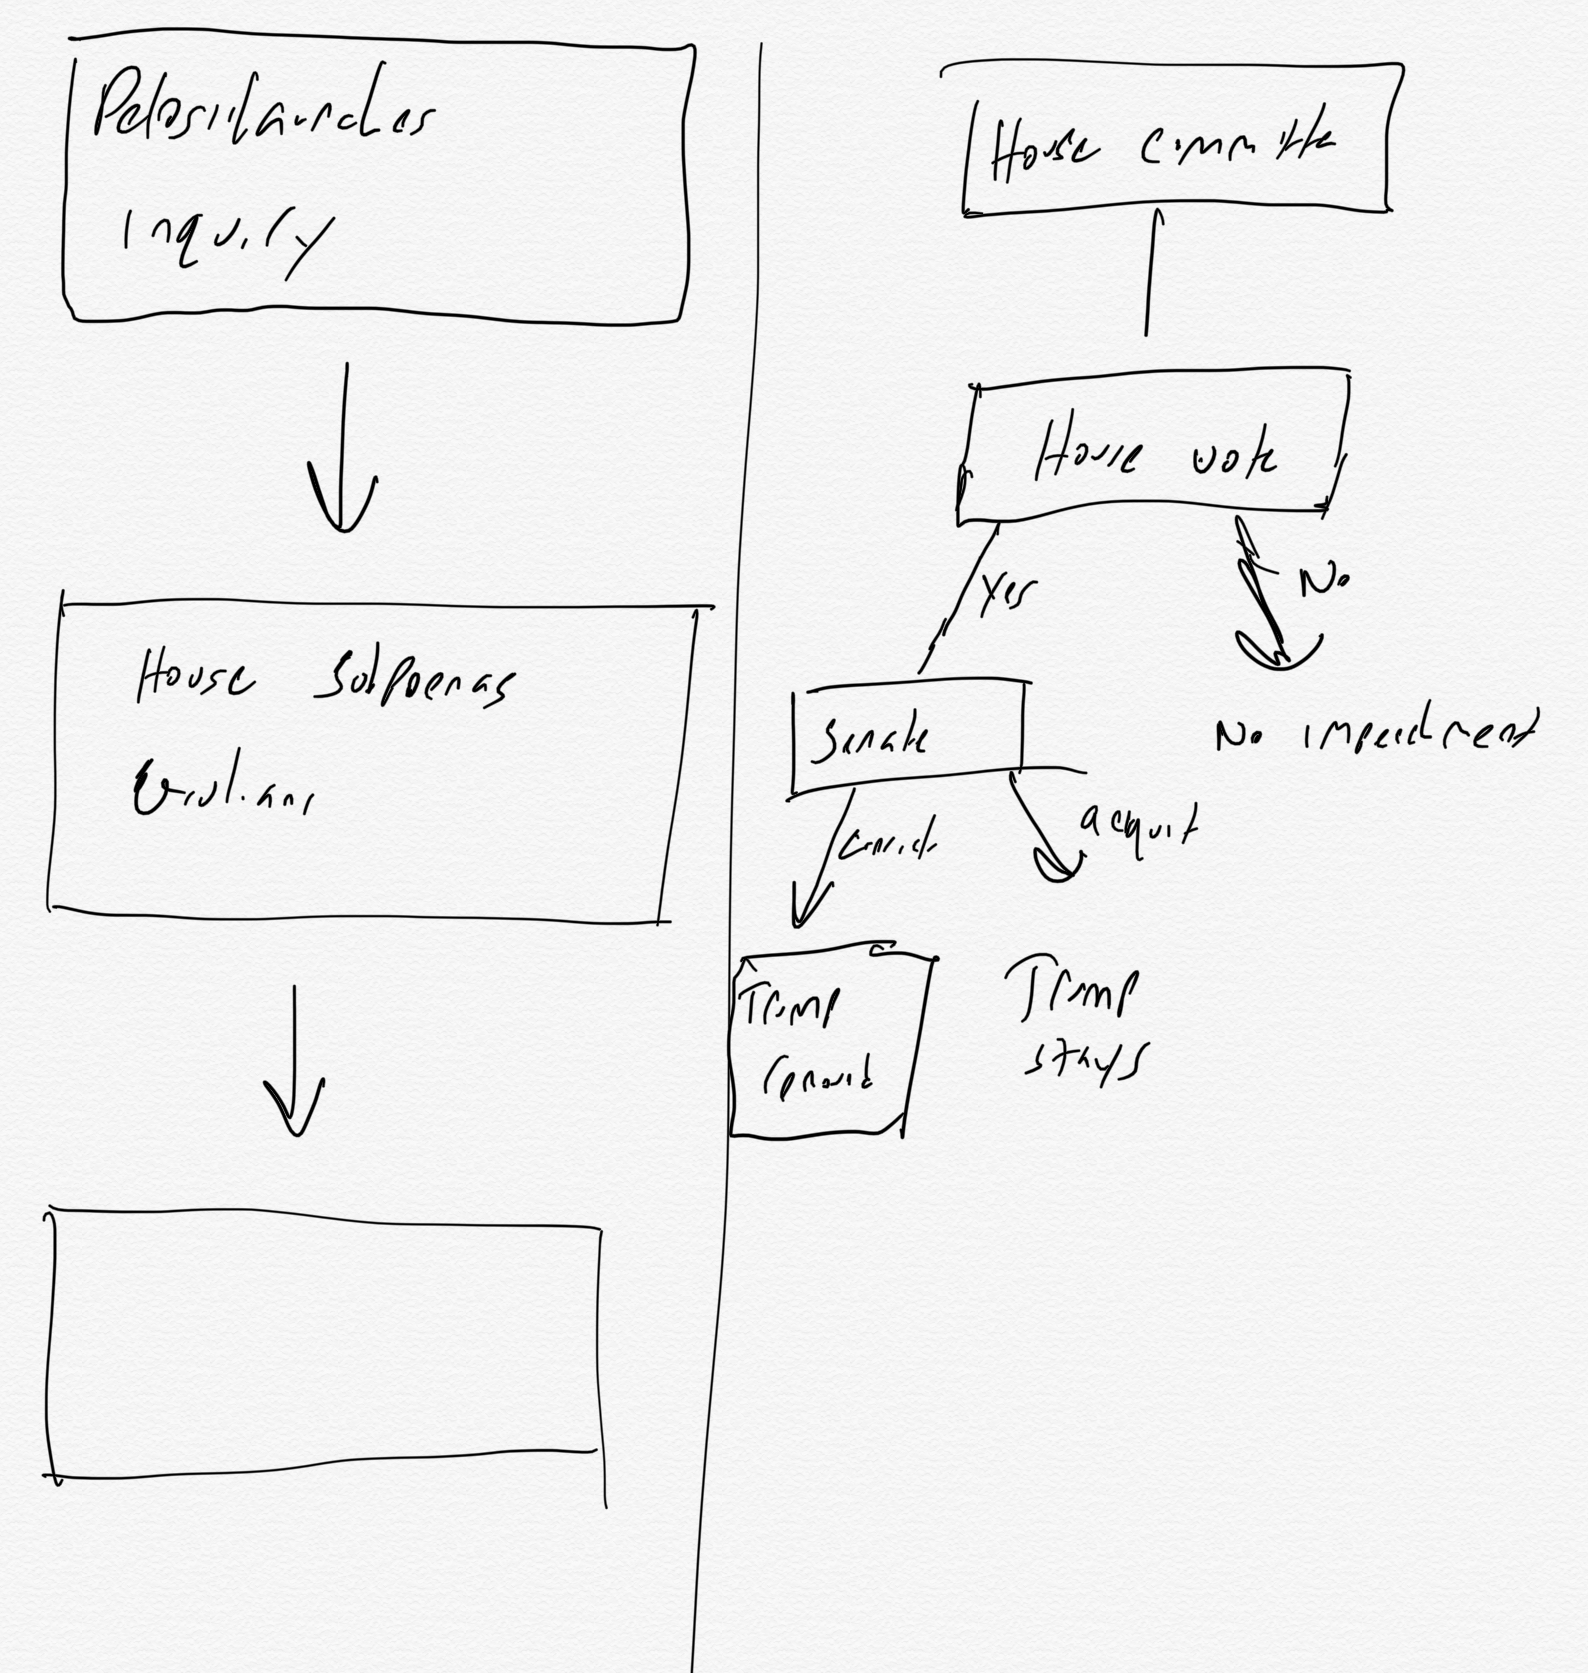 Pelosi launches
inquiry
House Subpoenas
Giuliani
House committe
House vote
Yes
No
Senate
No impeachment
convict
acquit
Trump
removed
Trump
stays